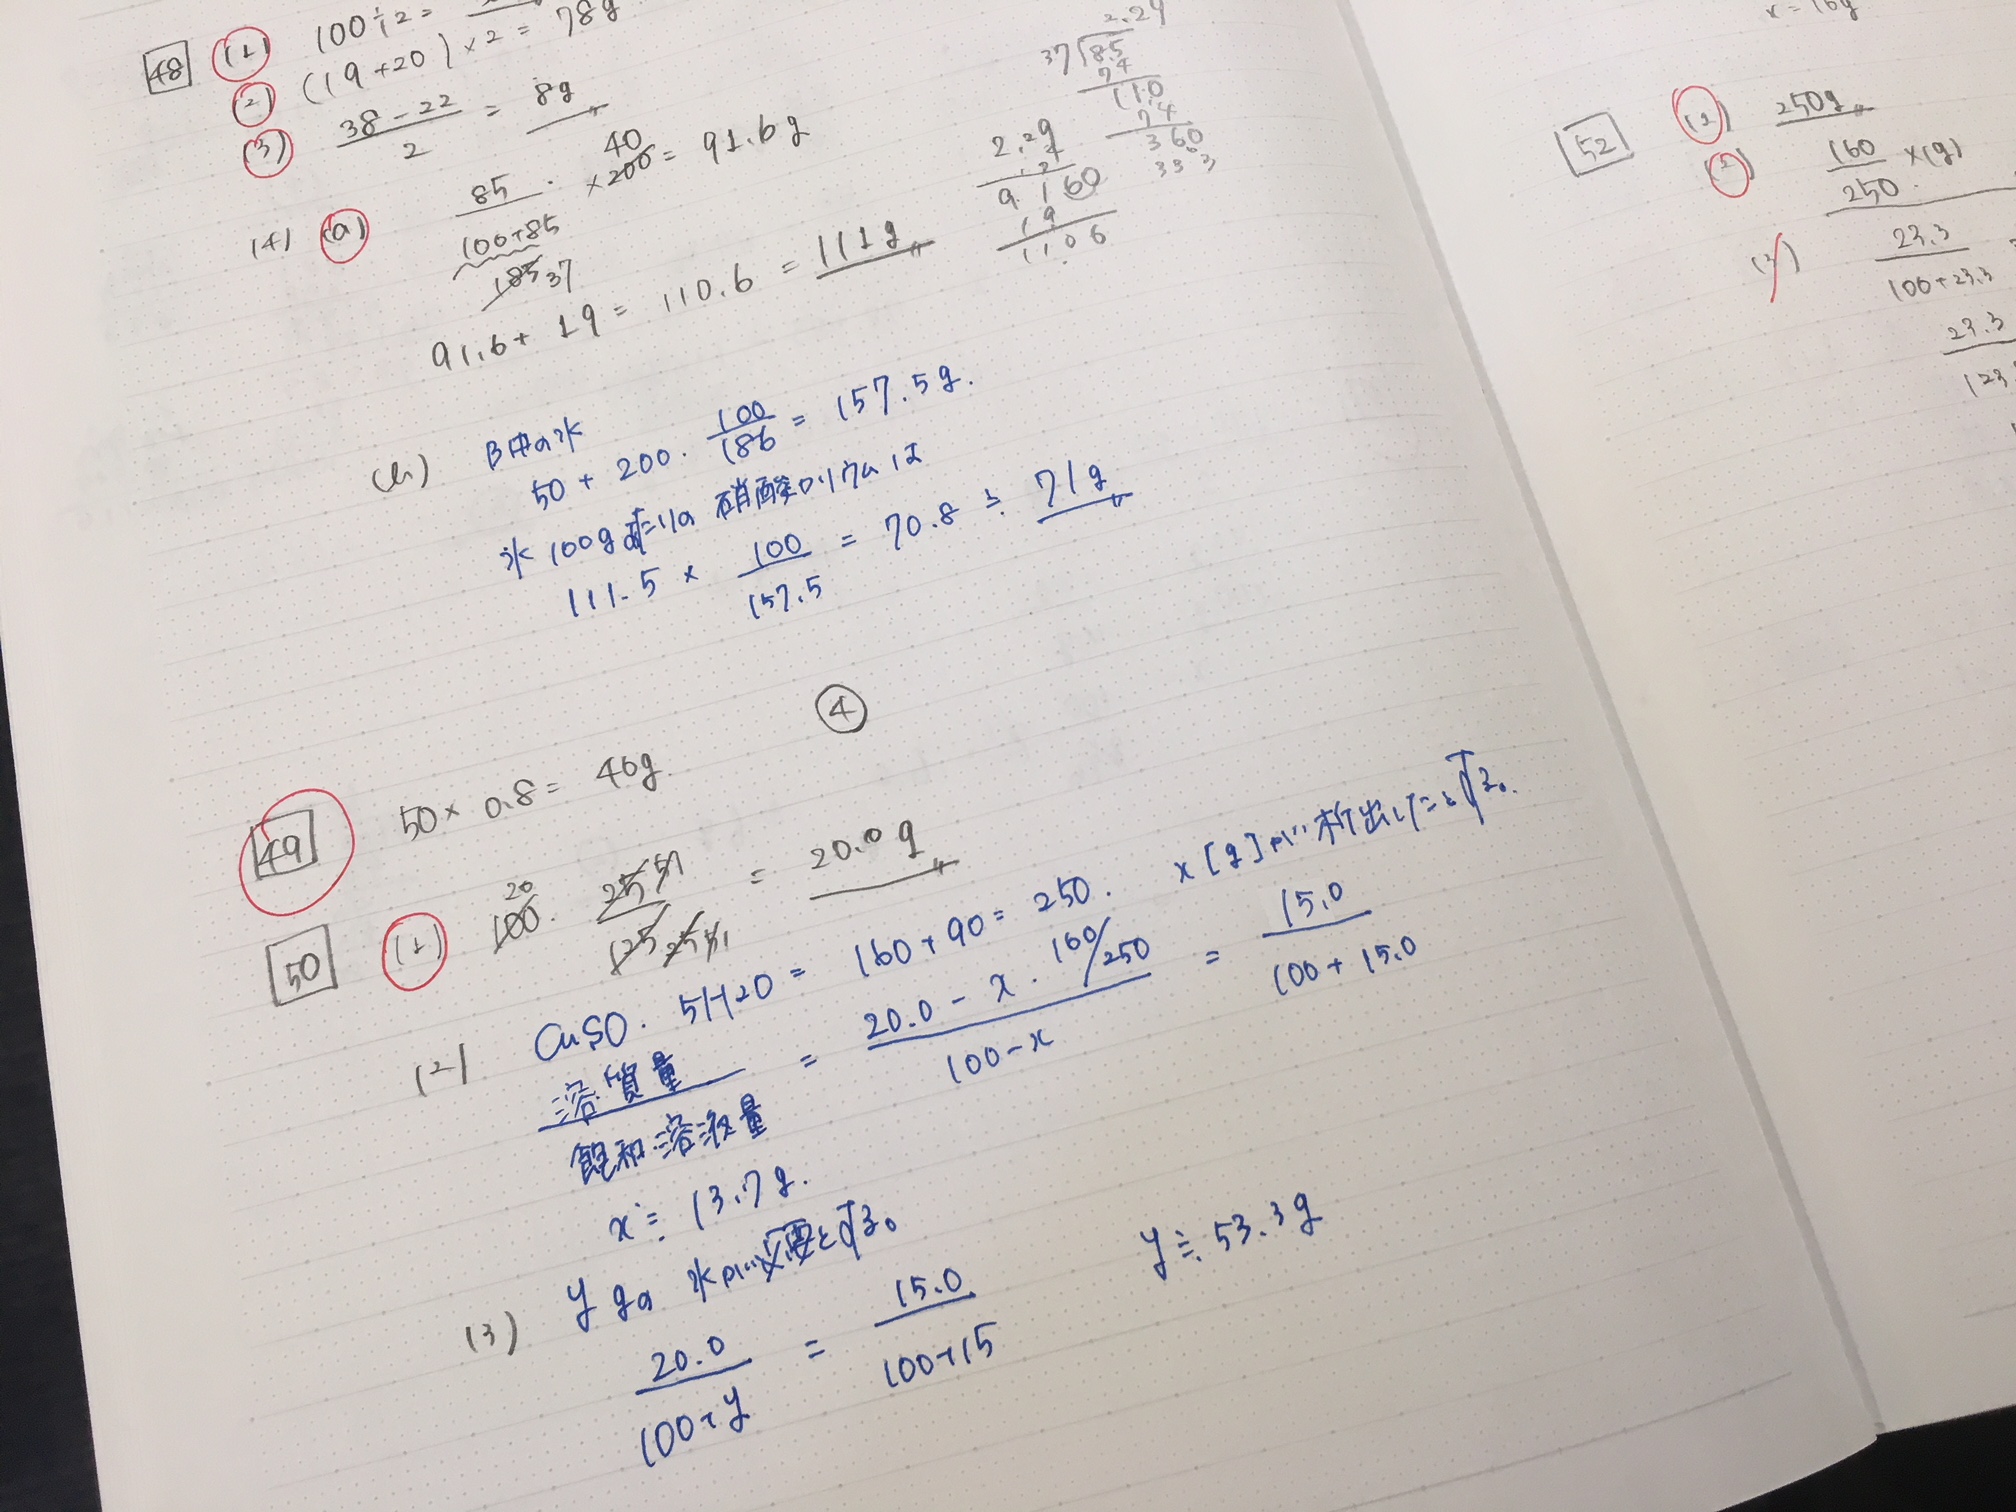 48 (1) 100÷2=
(2) (19+20)×2= 78g
(3) 38-22/2 = 8g
(4) (a) 85/100+85 · ×200 40 = 91.6g
185 37
91.6+19= 110.6 = 111g
2.29
37 85
74
110
74
360
333
2.29
9160
19
1106
(b) B中の水
50+200· 100/186 = 157.5g.
水100gあたりの硝酸カリウムは
111.5 × 100/157.5 = 70.8 ≒ 71g
4
49 50×0.8= 40g
50 (1) 100 20 · 25/125 = 20.0g
(2) CuSO· 5H2O = 160+90= 250. x[g]が析出したとする.
溶質量/飽和溶液量 = 20.0-x·160/250/100-x = 15.0/100+15.0
x≒ 13.7g.
(3) y gの水が必要とする。
20.0/100+y = 15.0/100+15 y≒ 53.3g
x=16g
52 (1) 250g
(2) 160/250 x(g)
(3) 23.3/100+23.3
23.3